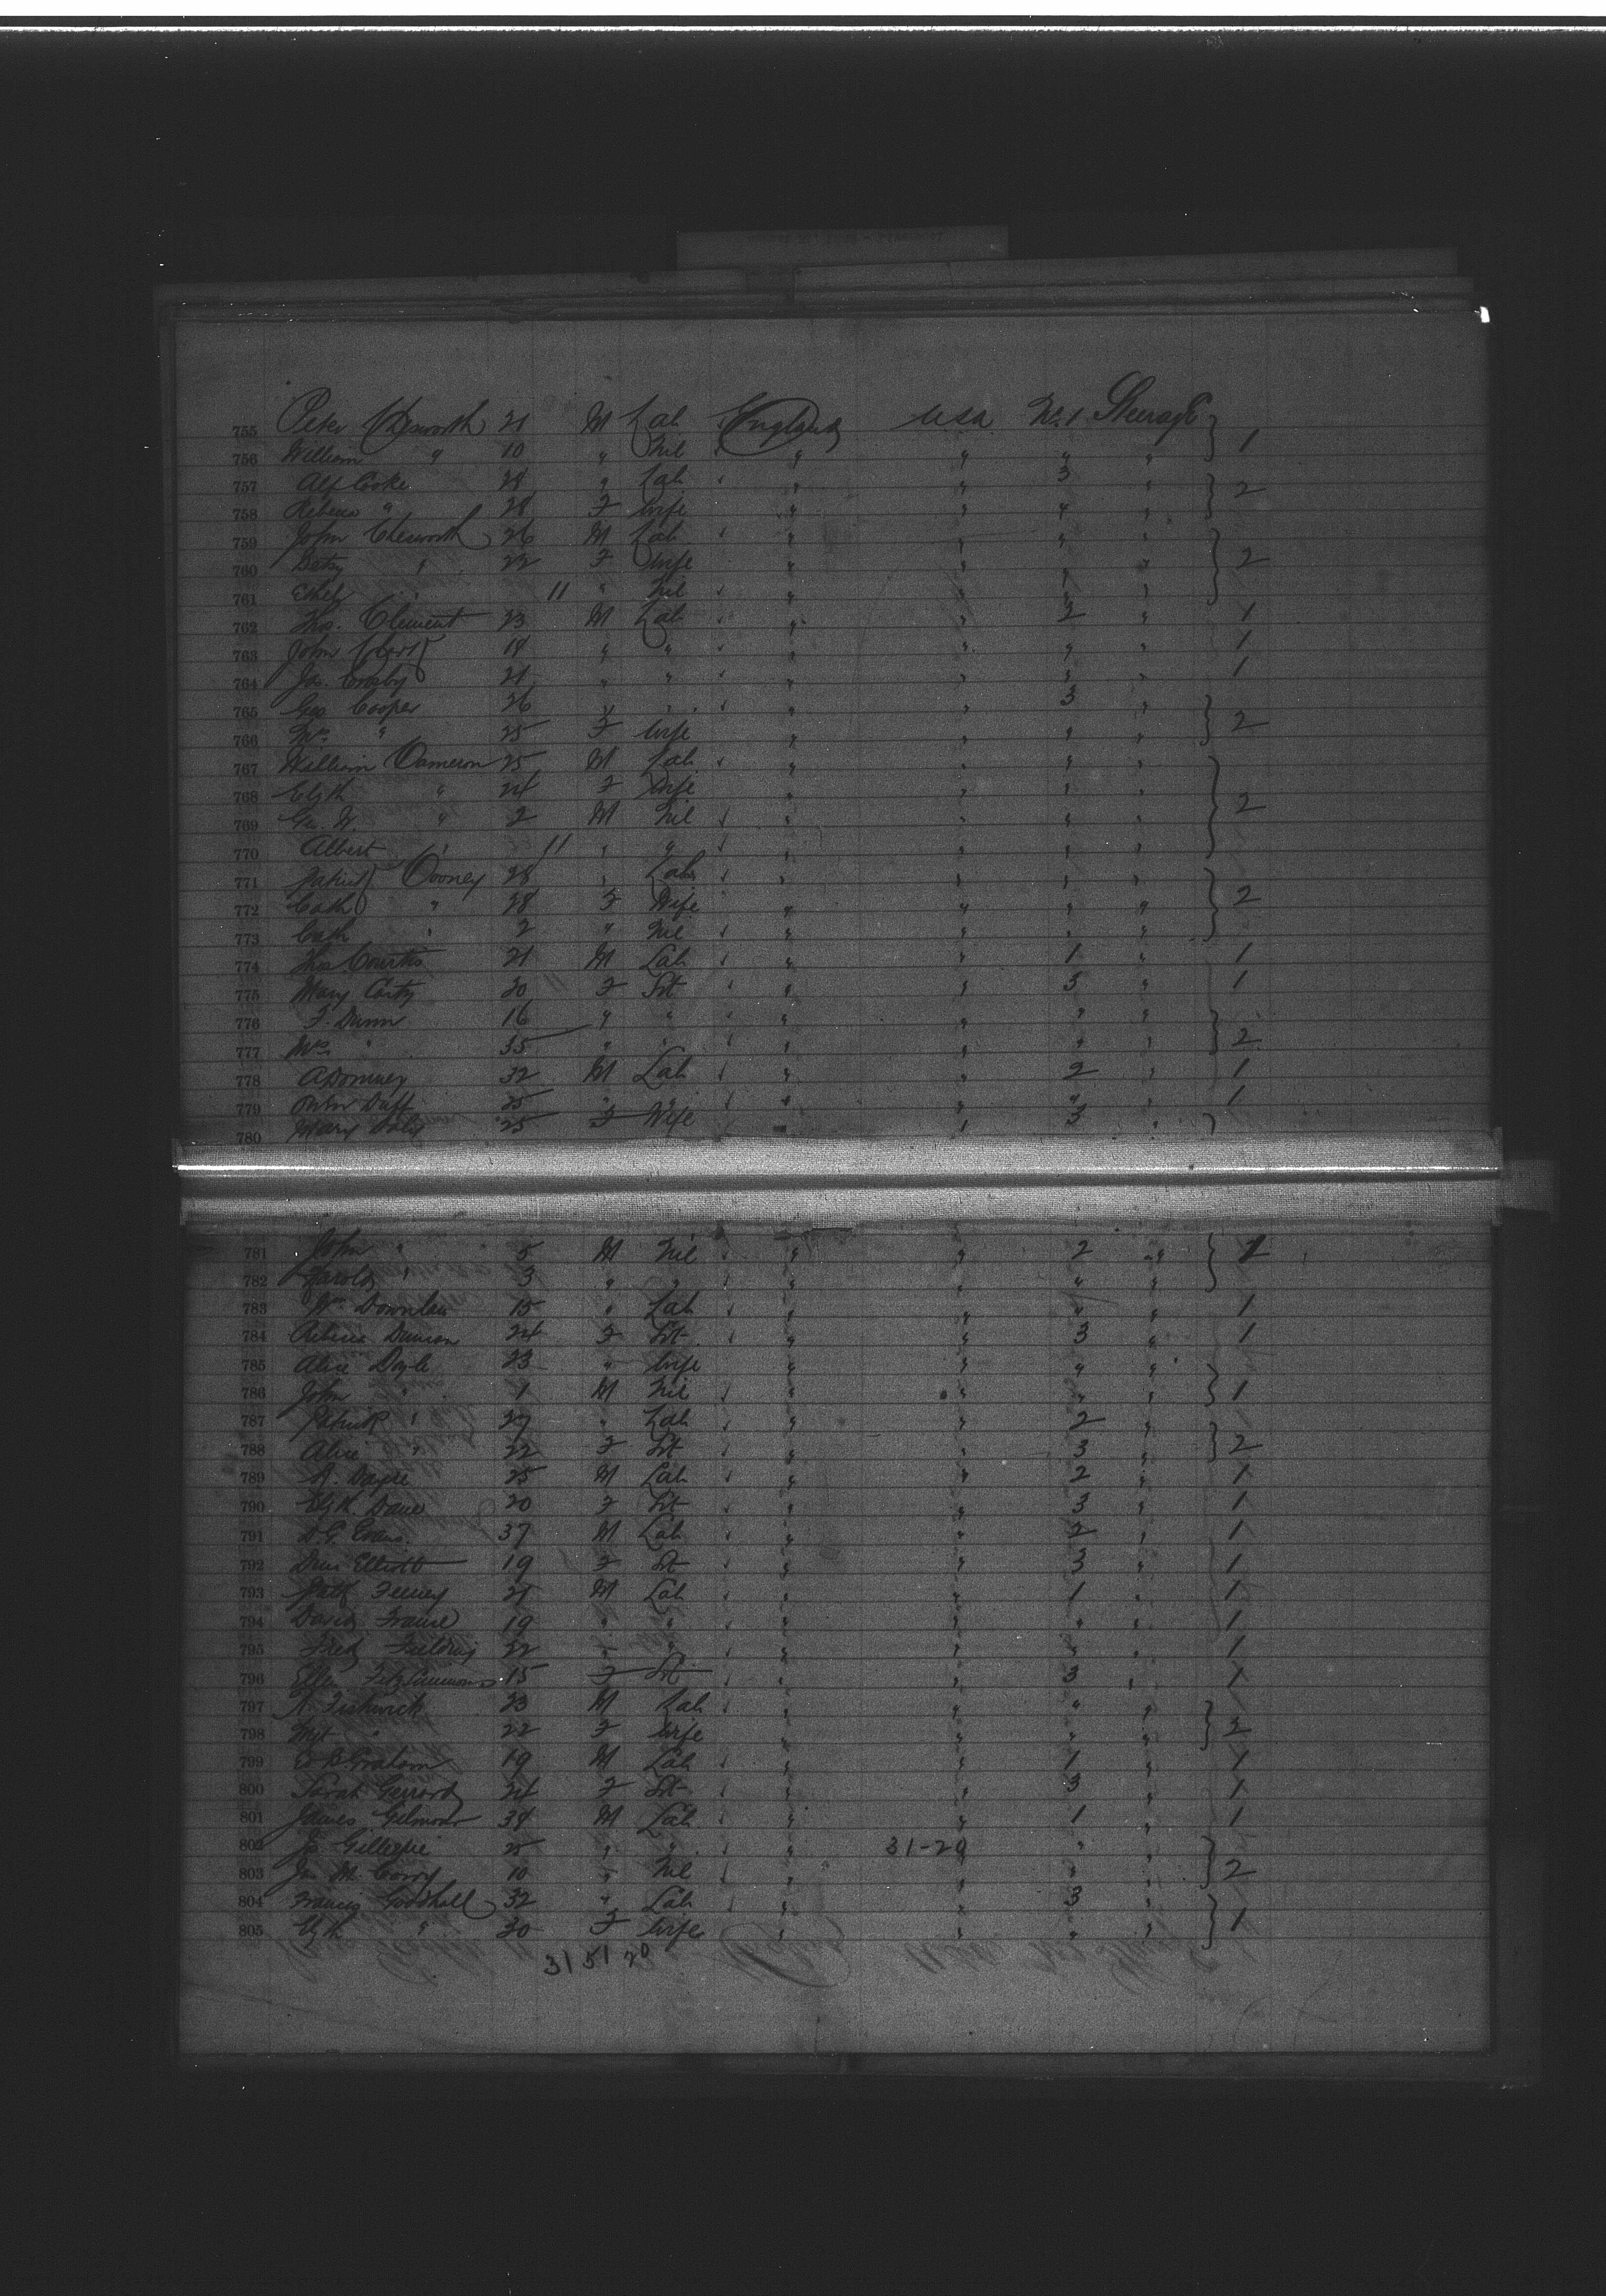 755 Peter 21 M Lab England USA No. 1 Steerage
756 William " 10 " Nil " " " " 1
757 Alf Cooke 28 " Lab " " 3 "
758 Rebecca " 28 F Wife " " " " 2
759 John Chesworth 26 M Lab " " " "
760 Betsy " 22 F Wife " " " " 2
761 Ethel " 11 " Nil " " " "
762 Thos. Clement 23 M Lab " " 2 " 1
763 John 18 " " " " " " 1
764 Jas. Crosby 21 " " " " " " 1
765 Geo Cooper 26 " " " " 3 "
766 Mrs " 25 F Wife " " " " 2
767 William Cameron 25 M Lab " " " "
768 Elizth " 24 F Wife " " " "
769 Geo. W. " 2 M Nil " " " " 2
770 Albert " 11 " " " " " "
771 Patrick Cooney 28 " Lab " " " "
772 Cath " 28 F Wife " " " " 2
773 Cath " 2 " Nil " " " "
774 Thos Courtis 21 M Lab " " 1 " 1
775 Mary Carty 20 F Svt " " 3 " 1
776 F. Dunn 16 " " " " " "
777 Mrs " 35 " " " " " " 2
778 A Domney 32 M Lab " " 2 " 1
779 Duff 25 " " " " " " 1
780 Mary 25 F Wife " 3 "
781 John " 5 M Nil " " 2 " 1
782 Harold " 3 " " " " " "
783 Wm 15 " Lab " " " " 1
784 Rebecca 24 F Svt " " 3 " 1
785 Alice Doyle 23 " Wife " " " "
786 John " 1 M Nil " " " " 1
787 Patrick " 27 " Lab " " 2 "
788 Alice " 22 F Svt " " 3 " 2
789 25 M Lab " " 2 " 1
790 Elizth. 20 F Svt " " 3 " 1
791 D. G. Evans. 37 M Lab " " 2 " 1
792 Elliott 19 F Svt " " 3 " 1
793 Patk Feeney 21 M Lab " " 1 " 1
794 David 19 " " " " " " 1
795 Fred Fielding 22 " " " " " " 1
796 Ellen FitzSimmons 15 F Svt " " 3 " 1
797 Fishwick 23 M Lab " " " "
798 Mgt " 22 F Wife " " " " 2
799 Graham 19 M Lab " " 1 " 1
800 Sarah Gerrard 24 F Svt " " 3 " 1
801 James Gilmour 38 M Lab " " 1 " 1
802 Jas Gillespie 25 " " " 31-29 " "
803 Jas M. Corry 10 " Nil " " " " 2
804 Francis Goodhall 32 " Lab " " 3 "
805 Elizth " 30 F Wife " " " " 1
31 51 20